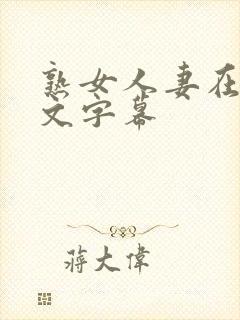 熟女人妻在
文字幕
蒋大偉